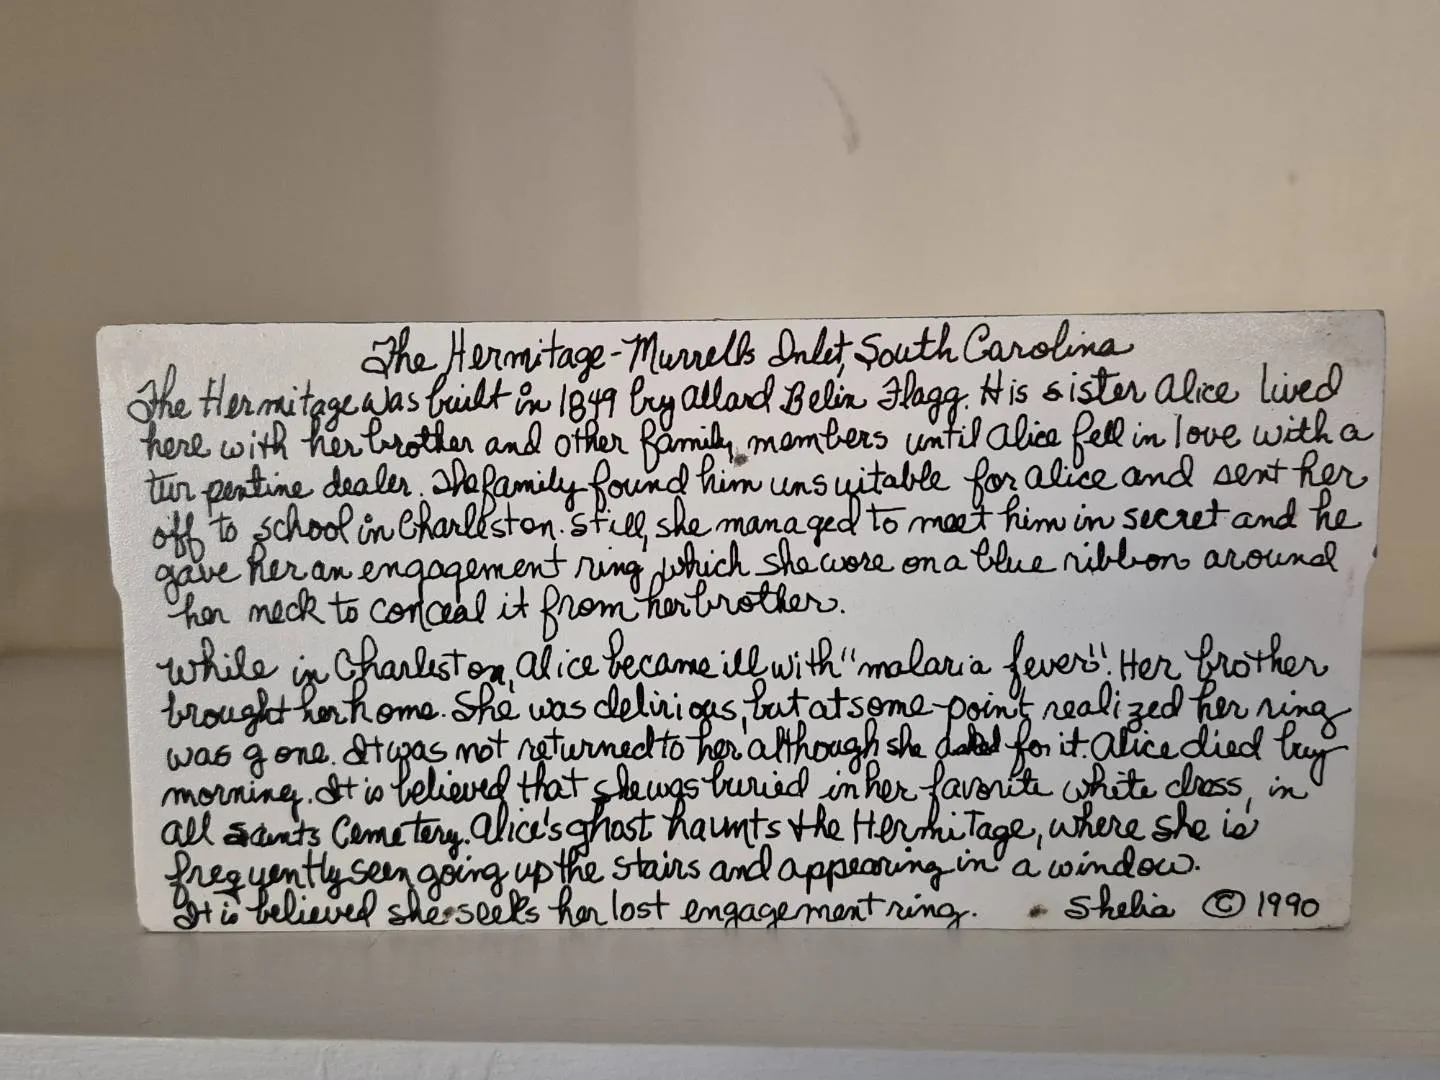 The Hermitage-Murrells Inlet, South Carolina
The Hermitage was built in 1849 by Allard Belin Flagg. His sister Alice lived
here with her brother and other family members until Alice fell in love with a
turpentine dealer. The family found him unsuitable for Alice and sent her
off to school in Charleston. Still, she managed to meet him in secret and he
gave her an engagement ring, which she wore on a blue ribbon around
her neck to conceal it from her brother.
While in Charleston, Alice became ill with "malaria fever". Her brother
brought her home. She was delirious, but at some point realized her ring
was gone. It was not returned to her although she asked for it. Alice died by
morning. It is believed that she was buried in her favorite white dress, in
All Saints Cemetery. Alice's ghost haunts the Hermitage, where she is
frequently seen going up the stairs and appearing in a window.
It is believed she seeks her lost engagement ring. Shelia © 1990